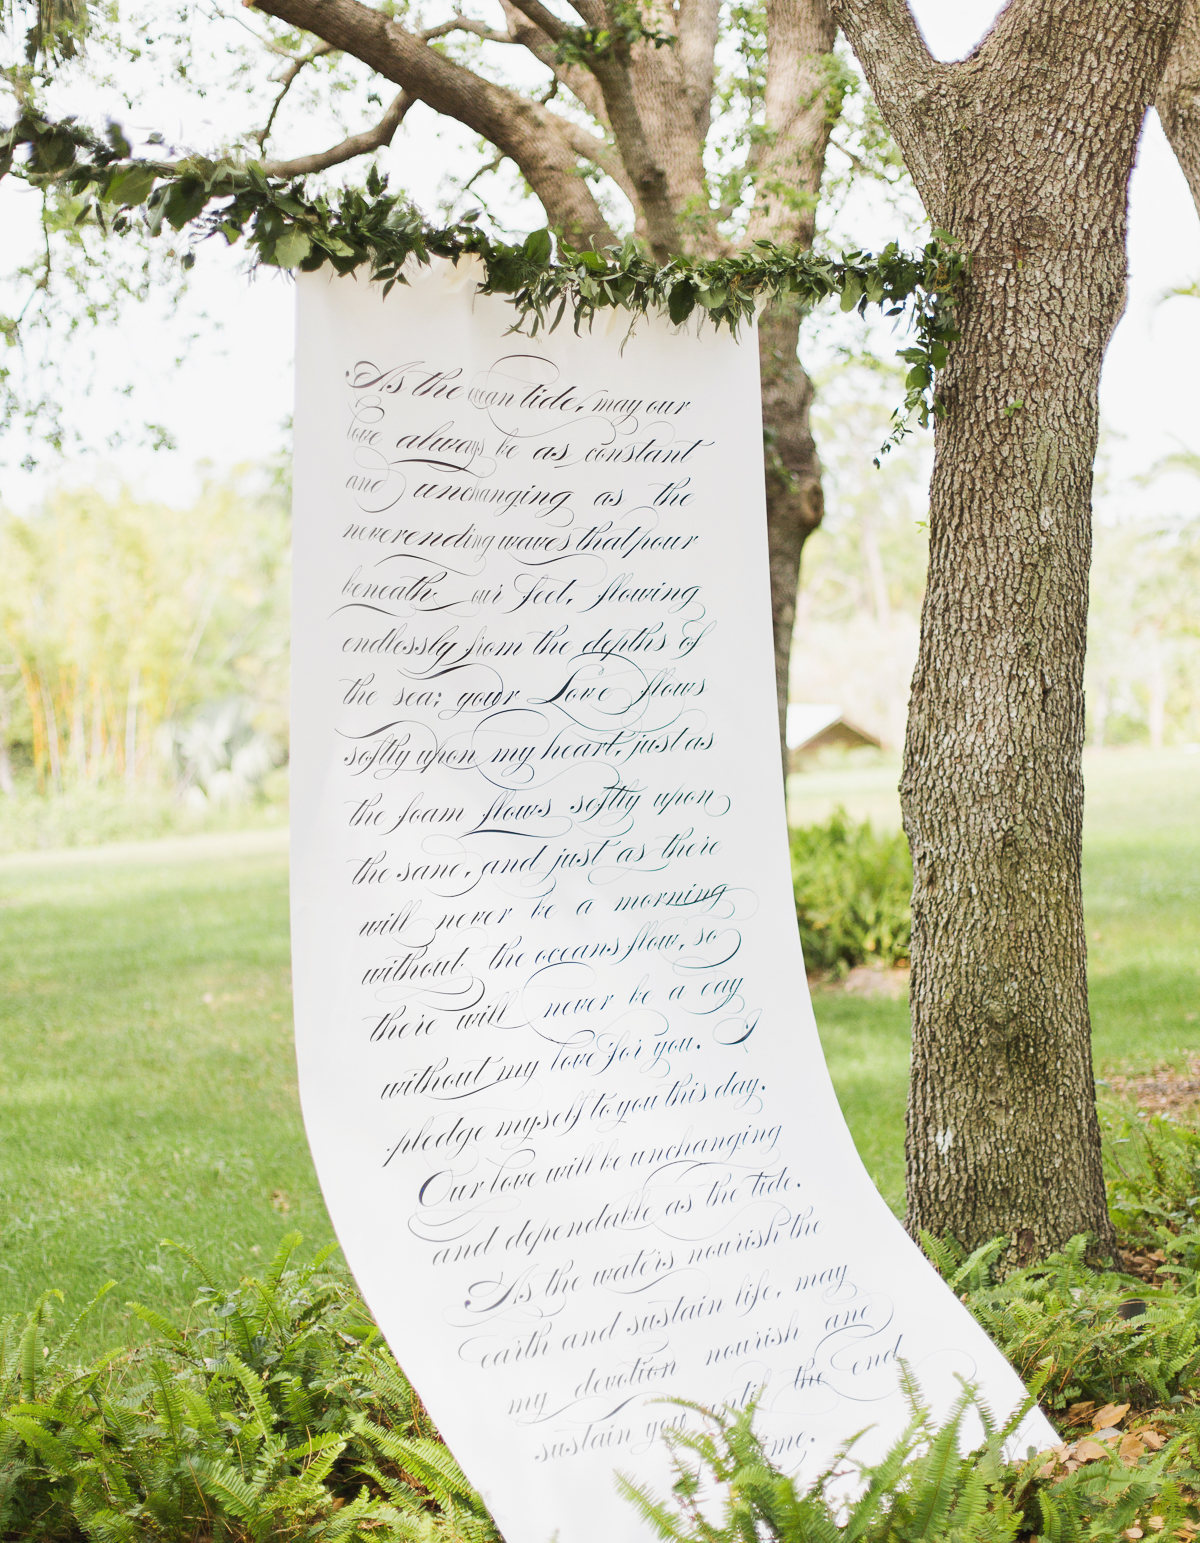 As the ocean tide, may our
love always be as constant
and unchanging as the
neverending waves that pour
beneath our feet, flowing
endlessly from the depths of
the sea; your Love flows
softly upon my heart, just as
the foam flows softly upon
the sand, and just as there
will never be a morning
without the oceans flow, so
there will never be a day
without my love for you. I
pledge myself to you this day.
Our love will be unchanging
and dependable as the tide.
As the waters nourish the
earth and sustain life, may
my devotion nourish and
sustain you until the end
time.